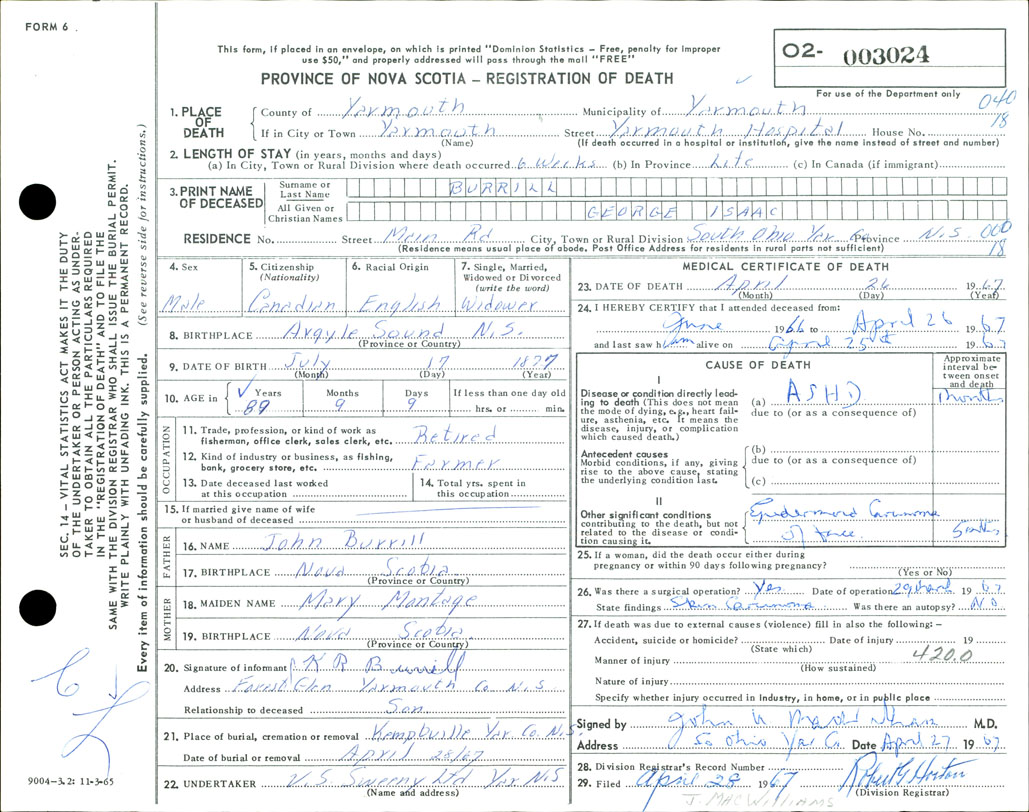 FORM 6 .
This form, if placed in an envelope, on which is printed "Dominion Statistics – Free, penalty for improper
use $50," and properly addressed will pass through the mail "FREE"
PROVINCE OF NOVA SCOTIA – REGISTRATION OF DEATH
O2- 003024
For use of the Department only
040
18
1. PLACE OF DEATH
County of Yarmouth Municipality of Yarmouth
If in City or Town Yarmouth Street Yarmouth Hospital House No.
(Name) (If death occurred in a hospital or institution, give the name instead of street and number)
2. LENGTH OF STAY (in years, months and days)
(a) In City, Town or Rural Division where death occurred 6 Weeks (b) In Province Life (c) In Canada (if immigrant)
3. PRINT NAME OF DECEASED
Surname or Last Name BURRILL
All Given or Christian Names GEORGE ISAAC
RESIDENCE No. Street Main Rd City, Town or Rural Division South Ohio Yar. Co. Province N.S. 000
18
(Residence means usual place of abode. Post Office Address for residents in rural parts not sufficient)
4. Sex
Male
5. Citizenship
(Nationality)
Canadian
6. Racial Origin
English
7. Single, Married,
Widowed or Divorced
(write the word)
Widower
8. BIRTHPLACE Argyle Sound N.S.
(Province or Country)
9. DATE OF BIRTH July 17 1877
(Month) (Day) (Year)
10. AGE in Years Months Days If less than one day old
89 9 9 hrs. or min.
OCCUPATION
11. Trade, profession, or kind of work as
fisherman, office clerk, sales clerk, etc. Retired
12. Kind of industry or business, as fishing,
bank, grocery store, etc. Farmer
13. Date deceased last worked
at this occupation
14. Total yrs. spent in
this occupation
15. If married give name of wife
or husband of deceased
FATHER
16. NAME John Burrill
17. BIRTHPLACE Nova Scotia
(Province or Country)
MOTHER
18. MAIDEN NAME Mary Montage
19. BIRTHPLACE Nova Scotia
(Province or Country)
20. Signature of informant K R Burrill
Address Forest Glen Yarmouth Co N.S.
Relationship to deceased Son
21. Place of burial, cremation or removal Kemptville Yar. Co. N.S.
Date of burial or removal April 28/67
22. UNDERTAKER V.S. Sweeny Ltd Yar N.S
(Name and address)
MEDICAL CERTIFICATE OF DEATH
23. DATE OF DEATH April 26 1967
(Month) (Day) (Year)
24. I HEREBY CERTIFY that I attended deceased from:
June 1966 to April 26 1967
and last saw him alive on April 25th 1967
CAUSE OF DEATH
Approximate
interval be-
tween onset
and death
I
Disease or condition directly lead-
ing to death (This does not mean
the mode of dying, e.g., heart fail-
ure, asthenia, etc. It means the
disease, injury, or complication
which caused death.)
(a) ASHD
due to (or as a consequence of)
Antecedent causes
Morbid conditions, if any, giving
rise to the above cause, stating
the underlying condition last.
(b)
due to (or as a consequence of)
(c)
II
Other significant conditions
contributing to the death, but not
related to the disease or condi-
tion causing it.
Epidermoid Carcinoma
25. If a woman, did the death occur either during
pregnancy or within 90 days following pregnancy?
(Yes or No)
26. Was there a surgical operation? Yes Date of operation 29 March 1967
State findings Skin Carcinoma Was there an autopsy? No
27. If death was due to external causes (violence) fill in also the following: –
Accident, suicide or homicide? Date of injury 19
(State which)
420.0
Manner of injury
(How sustained)
Nature of injury
Specify whether injury occurred in industry, in home, or in public place
Signed by John M.D.
Address So Ohio Yar Co. Date April 27 1967
28. Division Registrar's Record Number
29. Filed April 28 1967 Robert G Horton
(Division Registrar)
J. MACWILLIAMS
SEC. 14 – VITAL STATISTICS ACT MAKES IT THE DUTY
OF THE UNDERTAKER OR PERSON ACTING AS UNDER-
TAKER TO OBTAIN ALL THE PARTICULARS REQUIRED
IN THE "REGISTRATION OF DEATH" AND TO FILE THE
SAME WITH THE DIVISION REGISTRAR WHO SHALL ISSUE THE BURIAL PERMIT.
WRITE PLAINLY WITH UNFADING INK. THIS IS A PERMANENT RECORD.
Every item of information should be carefully supplied. (See reverse side for instructions.)
9004-3.2: 11-3-65